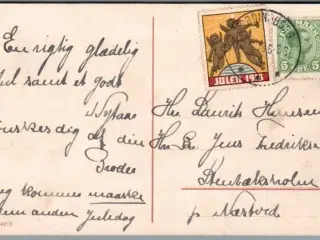 En rigtig glædelig
Jul samt et godt
Nytaar
ønskes dig af din
Broder
Jeg kommer maaske
hjem anden Juledag
Hr. Laurits Hansen
Hr. Jens Frederiksen
Stenbæksholm
pr. Næstved
JULEN 1913
5
5